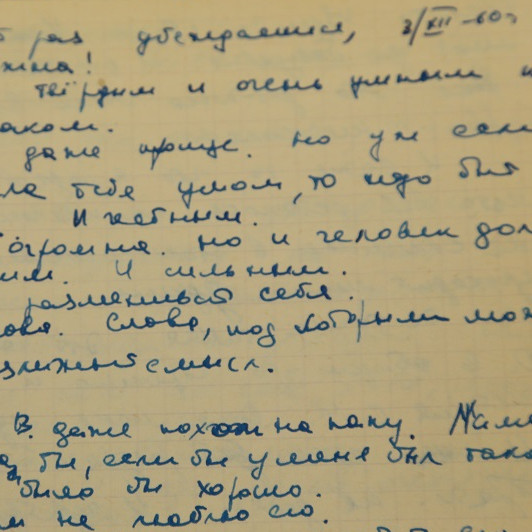 раз убеждаешься, 3/XII-60г
жна!
твёрдым и очень умным и
аком.
даже проще. Но уж если
ла тебе умом, то надо быт
И честным.
огромна. Но и человек дол
им. И сильным.
разменивать себя.
лова. Слова, под которыми мож
смысл.
В. даже похож на папу.
бы, если бы у меня был тако
было бы хорошо.
не люблю его.